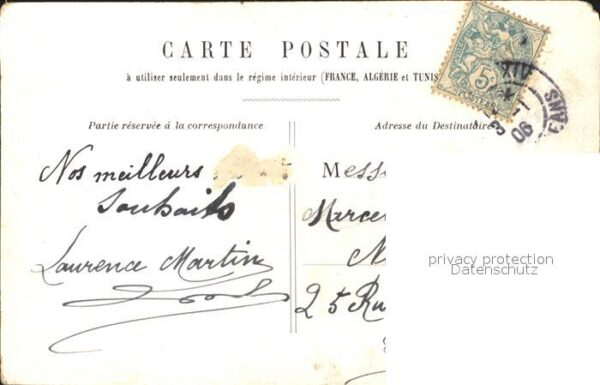 CARTE POSTALE
à utiliser seulement dans le régime intérieur (FRANCE, ALGÉRIE et TUNIS
Partie réservée à la correspondance
Nos meilleurs
souhaits
Laurence Martin
Adresse du Destinataire
Mess
Marce
25 Ru
5c
POSTES
06
privacy protection
Datenschutz